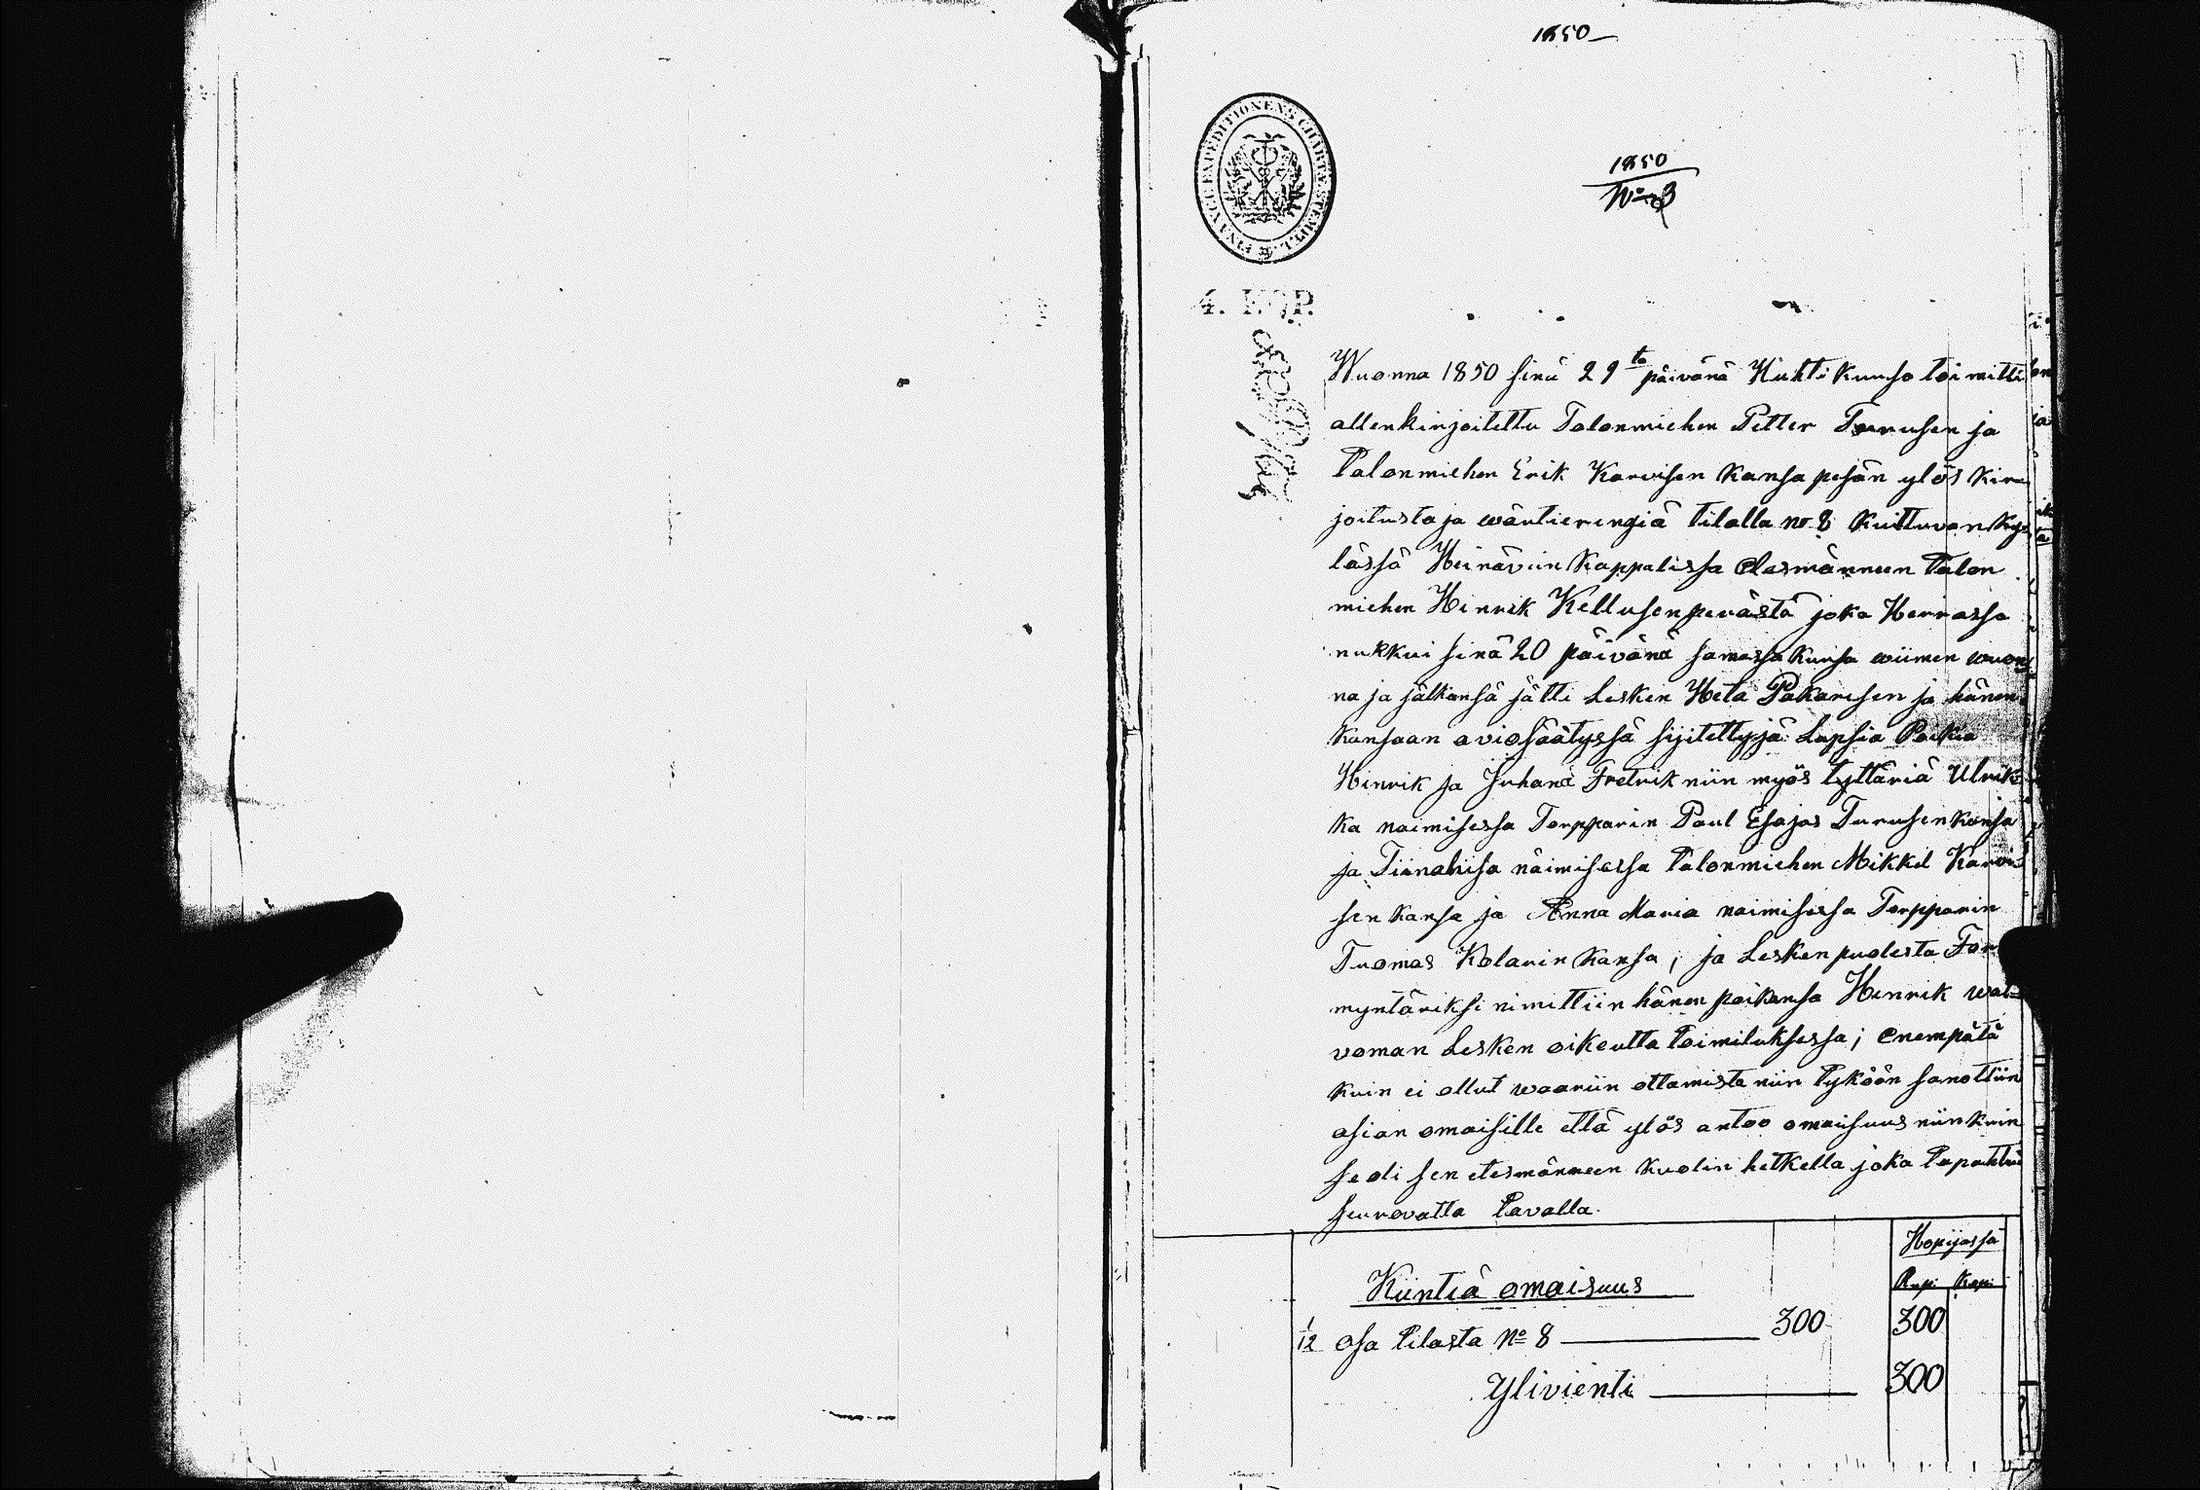 1850
FINANCE EXPEDITIONENS CHARTÆ STEMPL.
1850
No 3
4. KOP.
Wuonna 1850 sinä 29to päivänä Huhti kuusa toimitti
allenkirjoitettu Talonmiehen Petter Turusen ja
Talonmiehen Erik Karvisen kansa pesän ylös kir
joitusta ja wäntierengiä tilalla no 8 Kuittuvan ky
lässä Heinäviin kappelissa edesmänneen talon
miehen Hinrik Kellusen perästä joka Herrassa
nukkui sinä 20 päivänä samassa kuusa wiimen wuon
na ja jälkänsä jätti Lesken Heta Pakarisen ja hänen
kansaan aviosäätyssä sijitettyjä Lapsia Poikia
Hinrik ja Juhana Fretrik niin myös tyttäriä Ulrik
ka naimisessa Torpparin Paul Esajas Turusen kansa
ja Tiinaliisa näimisessa talonmiehen Mikkel Karvi
sen kansa ja Anna Maria naimisessa Torpparin
Tuomas Kolarin kansa; ja Lesken puolesta For
myntäriksi nimittiin hänen poikansa Henrik wal
voman Lesken oikeutta toimituksessa; enempätä
kuin ei ollut waariin ottamista niin tyköön sanottiin
asian omaisille että ylös antoo omaisuus niinkuin
se oli sen etesmänneen kuolin hetkellä joka tapahtui
seuravalla tavalla.
Hopijassa
Kiintiä omaisuus
Rupi Kopi
1/12 osa tilasta No 8 300 300
Ylivienti 300